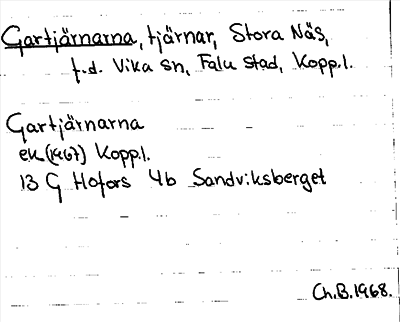 Gartjärnarna, tjärnar, Stora Näs,
f.d. Vika sn, Falu stad, Kopp.l.
Gartjärnarna
ek.(1967) Kopp.l.
13 G Hofors 4b Sandviksberget
Ch.B.1968.